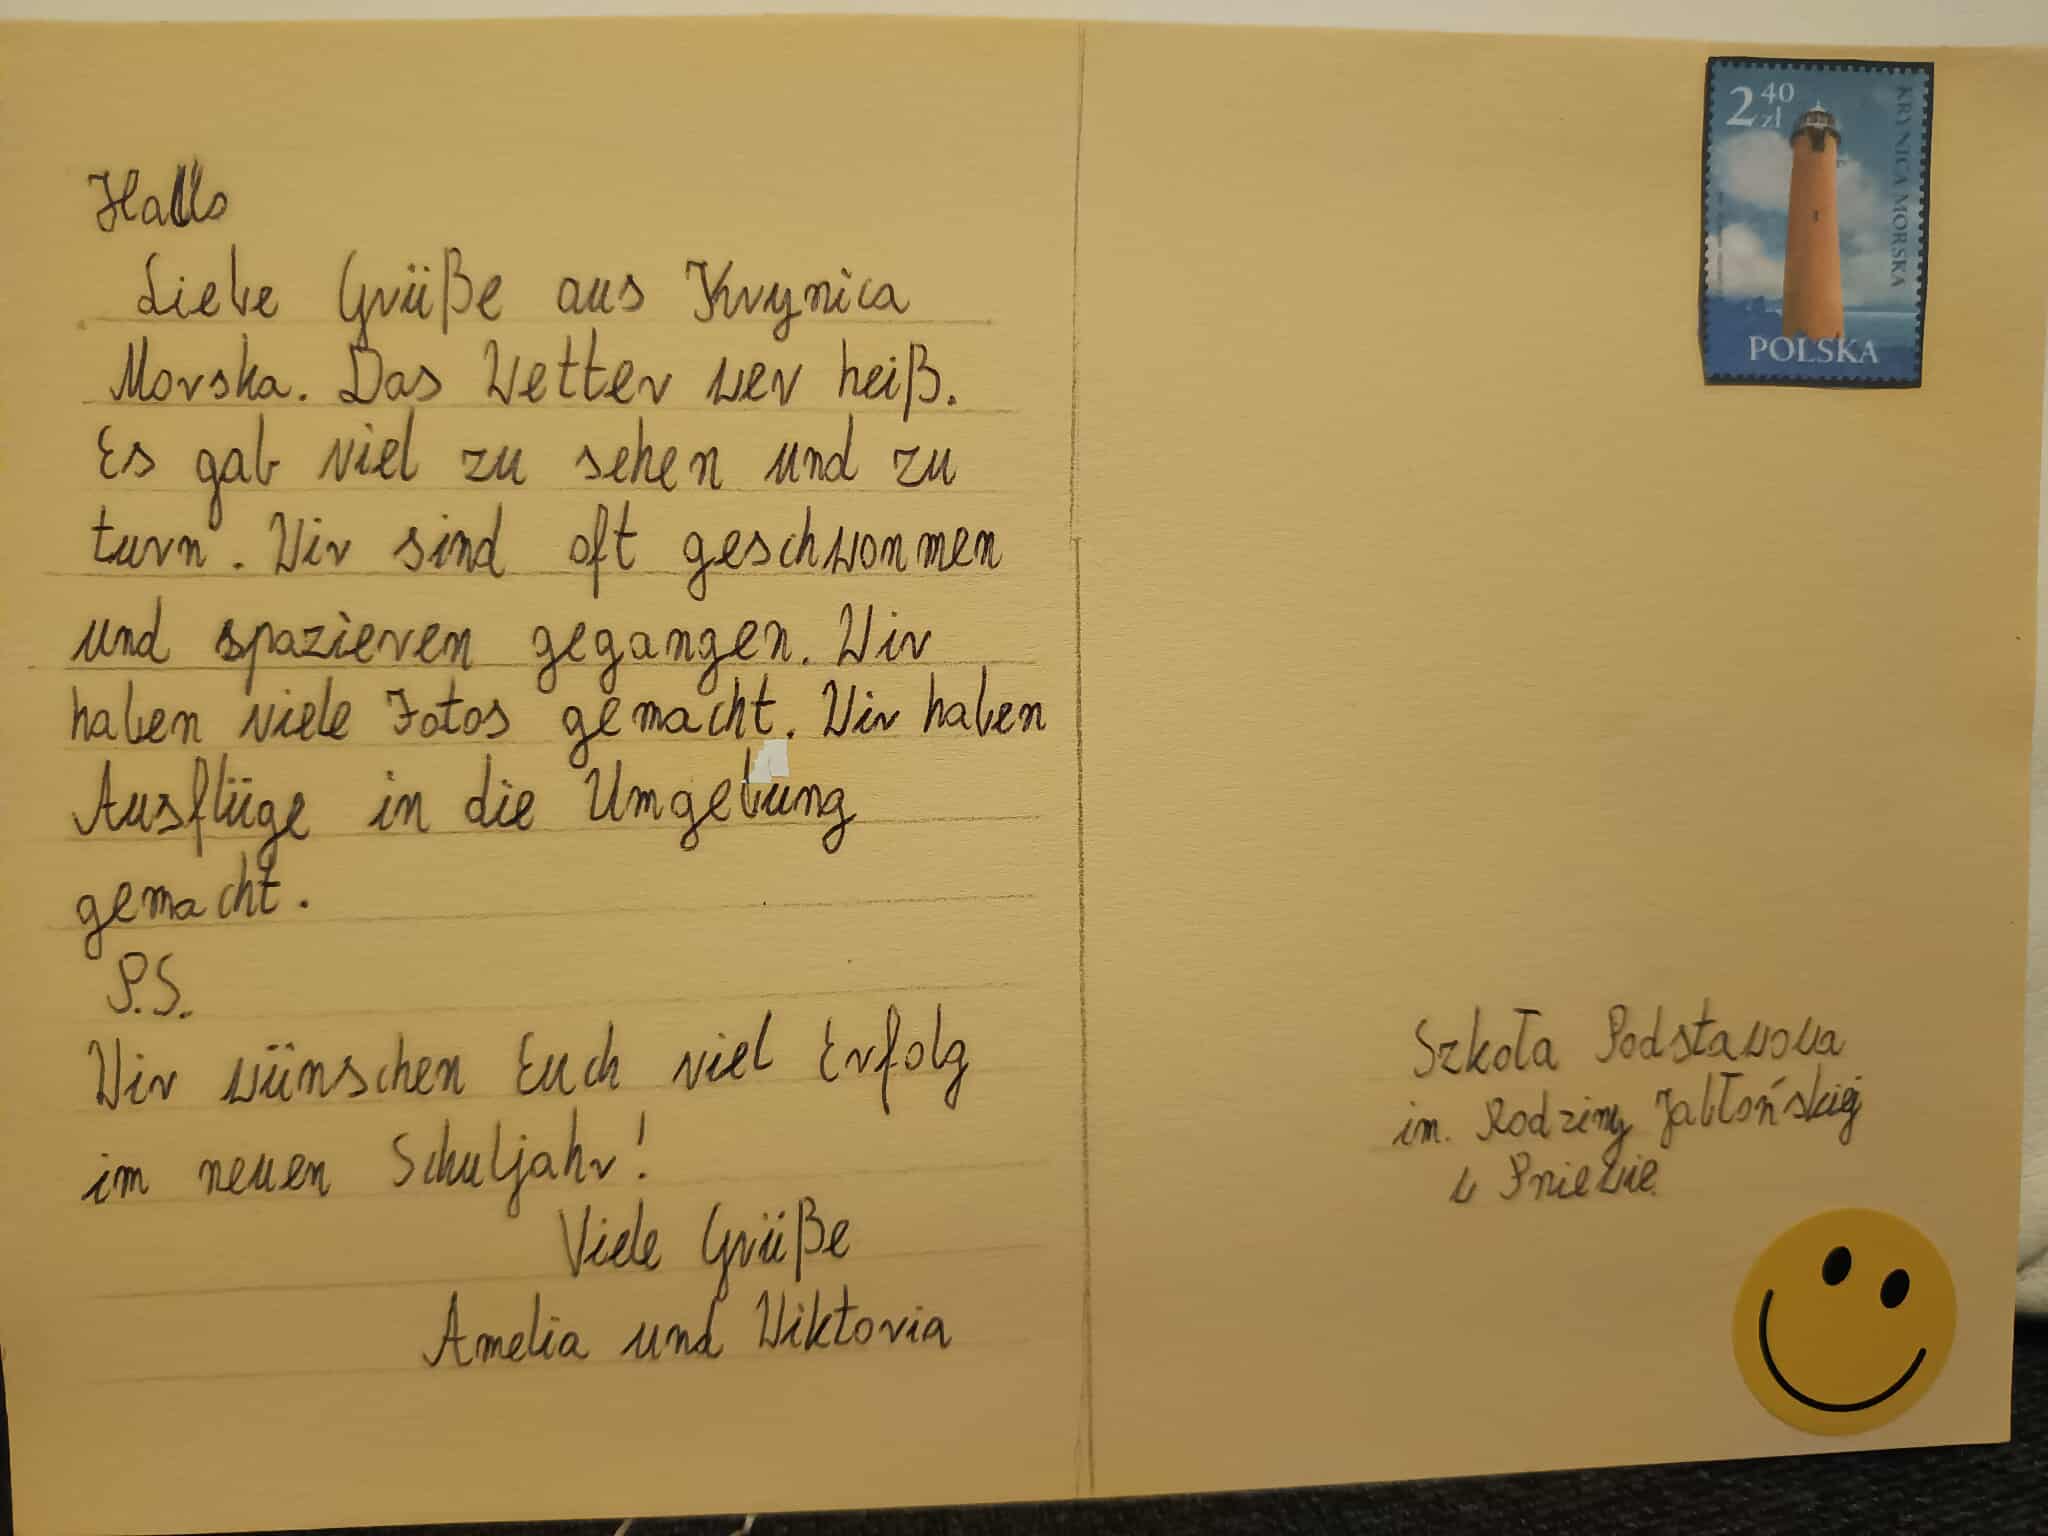 Hallo
Liebe Grüße aus Krynica
Morska. Das Wetter wer heiß.
Es gab viel zu sehen und zu
turn. Wir sind oft geschwommen
und spazieren gegangen. Wir
haben viele Fotos gemacht. Wir haben
Ausflüge in die Umgebung
gemacht.
P.S.
Wir wünschen Euch viel Erfolg
im neuen Schuljahr!
Viele Grüße
Amelia und Wiktoria
2 40 zł
KRYNICA MORSKA
POLSKA
Szkoła Podstawowa
im. Rodziny Jabłońskiej
w Pniewie